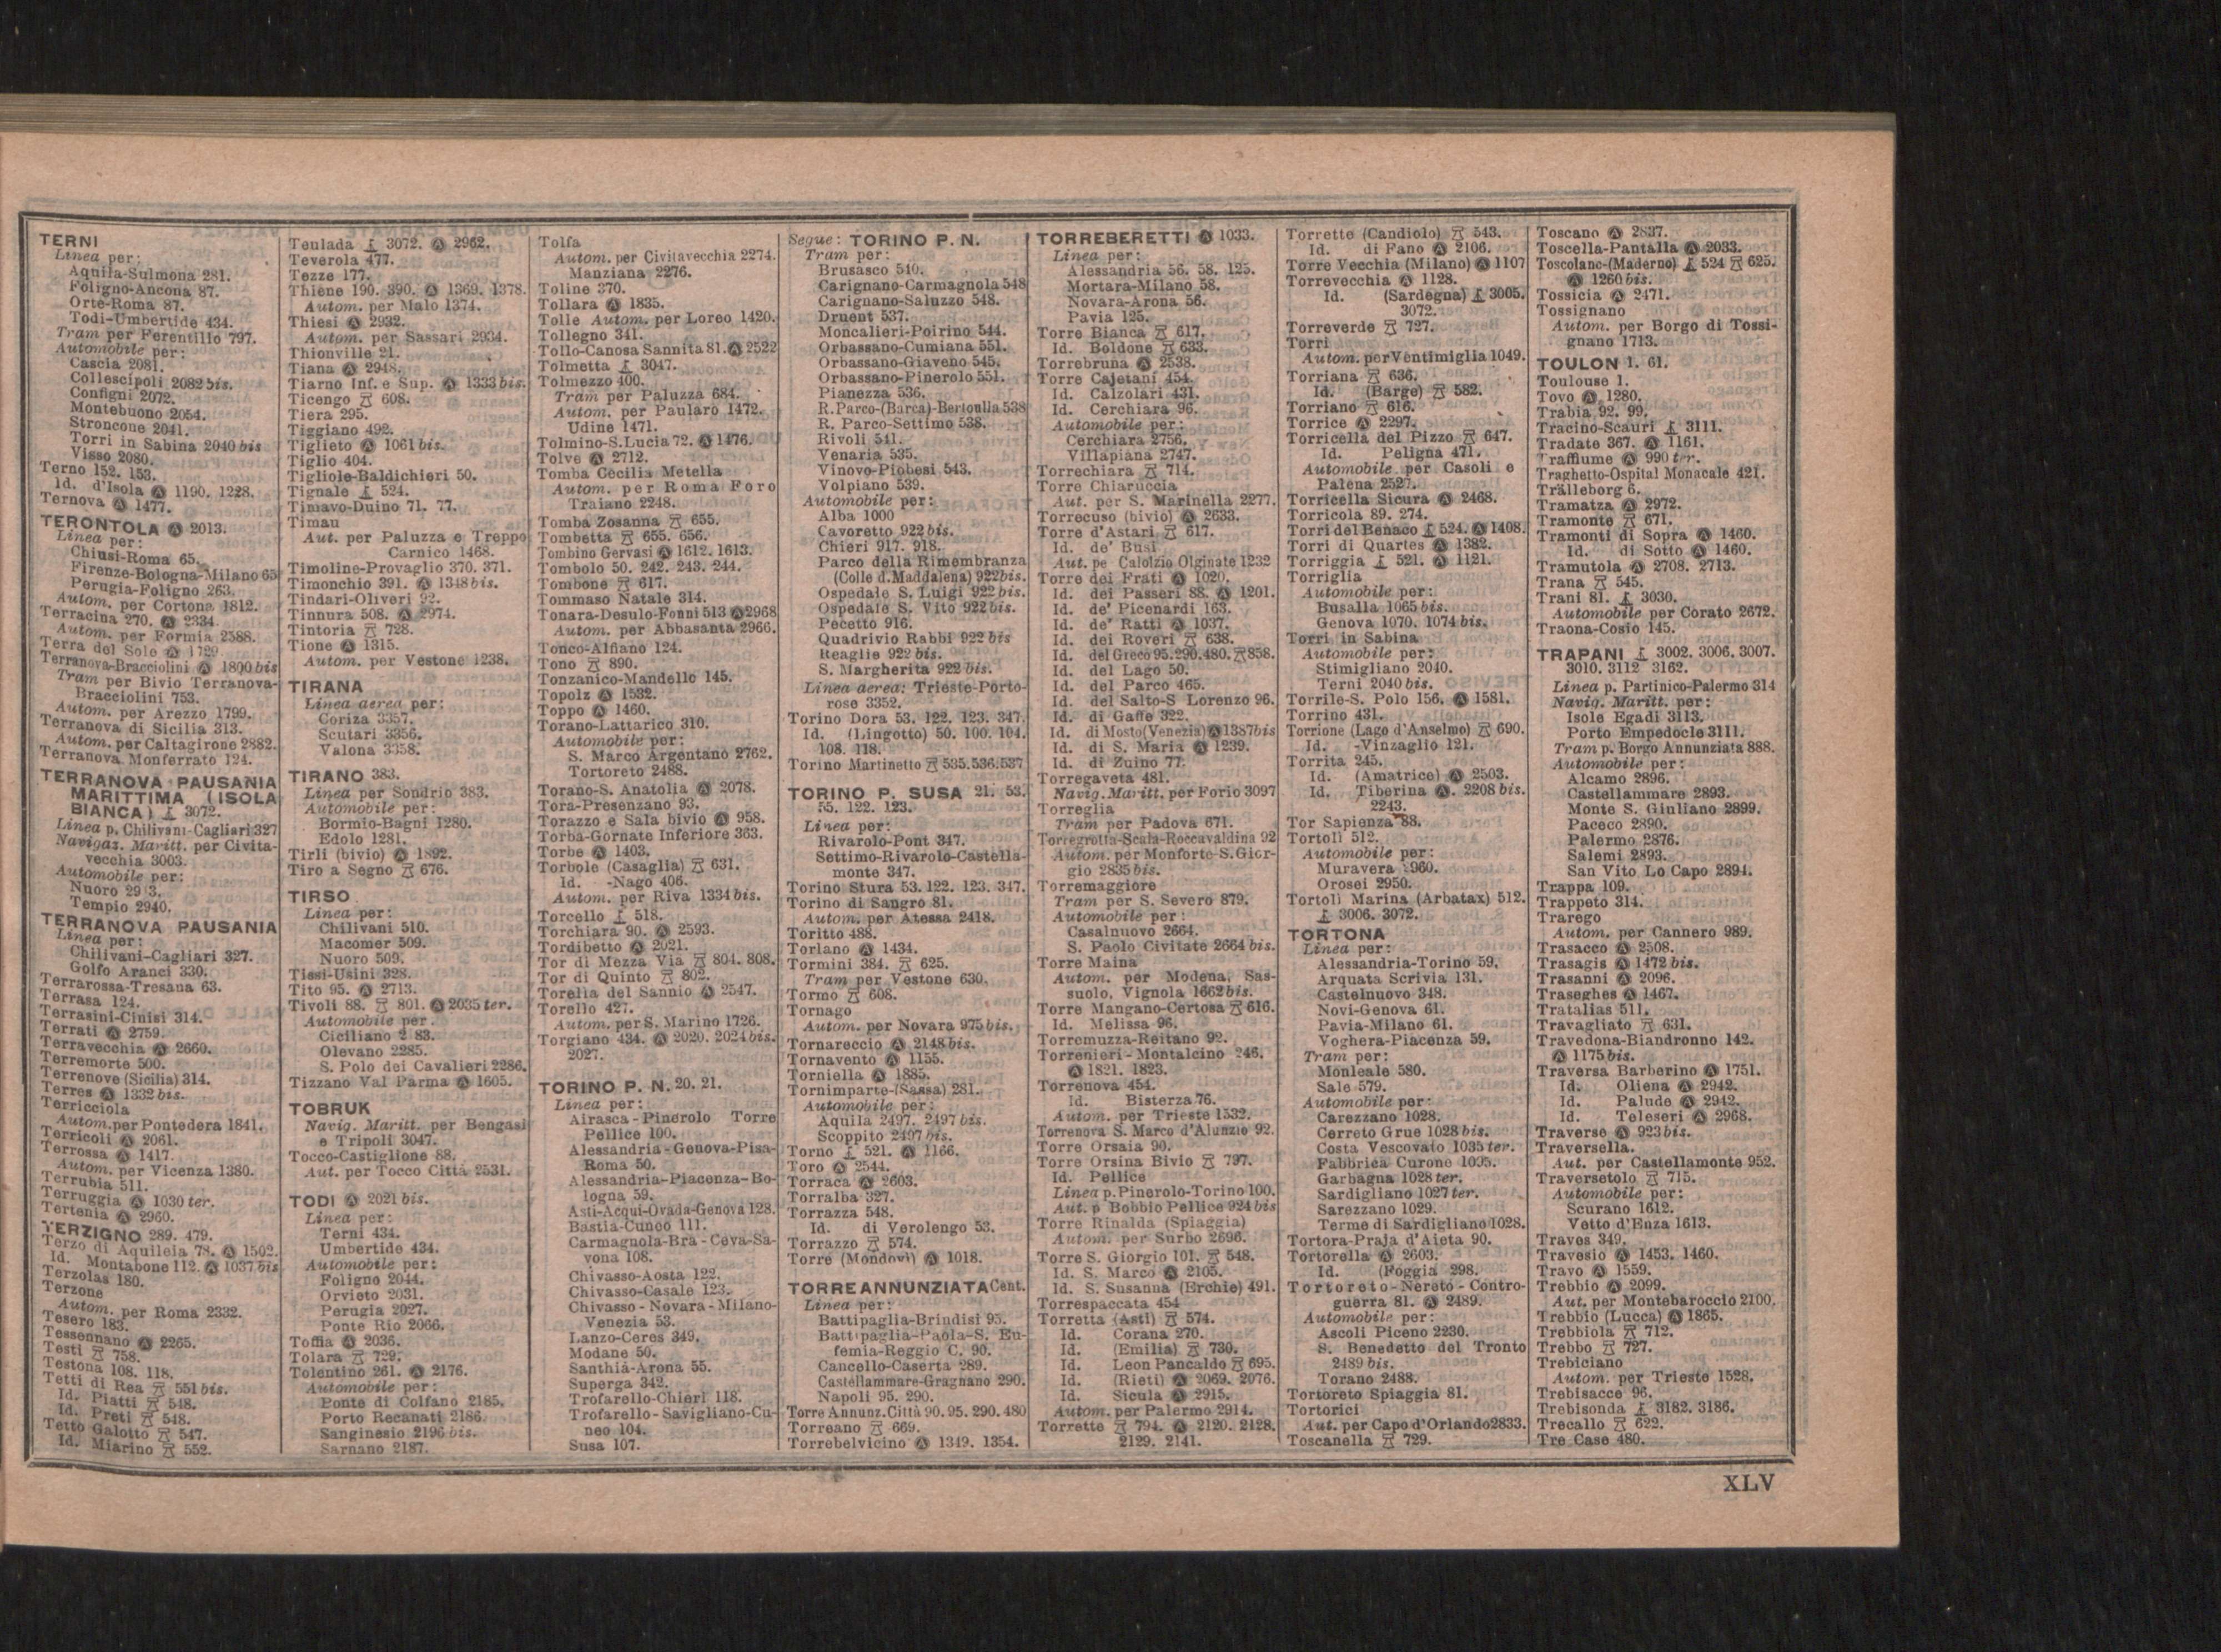 TERNI
Linea per:
Aquila-Sulmona 281.
Foligno-Ancona 87.
Orte-Roma 87.
Todi-Umbertide 434.
Tram per Ferentillo 797.
Automobile per:
Cascia 2081.
Collescipoli 2082 bis.
Configni 2072.
Montebuono 2054.
Stroncone 2041.
Torri in Sabina 2040 bis
Visso 2080.
Terno 152. 153.
Id. d'Isola Ⓐ 1190. 1228.
Ternova Ⓐ 1477.
TERONTOLA Ⓐ 2013.
Linea per:
Chiusi-Roma 65.
Firenze-Bologna-Milano 65
Perugia-Foligno 263.
Autom. per Cortona 1812.
Terracina 270. Ⓐ 2334.
Autom. per Formia 2588.
Terra del Sole Ⓐ 1729.
Terranova-Bracciolini Ⓐ 1800 bis
Tram per Bivio Terranova-
Bracciolini 753.
Autom. per Arezzo 1799.
Terranova di Sicilia 313.
Autom. per Caltagirone 2882.
Terranova Monferrato 124.
TERRANOVA PAUSANIA
MARITTIMA (ISOLA
BIANCA) 3072.
Linea p. Chilivani-Cagliari 327
Navigaz. Maritt. per Civita-
vecchia 3003.
Automobile per:
Nuoro 29 3.
Tempio 2940.
TERRANOVA PAUSANIA
Linea per:
Chilivani-Cagliari 327.
Golfo Aranci 330.
Terrarossa-Tresana 63.
Terrasa 124.
Terrasini-Cinisi 314.
Terrati Ⓐ 2759.
Terravecchia Ⓐ 2660.
Terremorte 500.
Terrenove (Sicilia) 314.
Terres Ⓐ 1332 bis.
Terricciola
Autom. per Pontedera 1841.
Terricoli Ⓐ 2061.
Terrossa Ⓐ 1417.
Autom. per Vicenza 1380.
Terrubia 511.
Terruggia Ⓐ 1030 ter.
Tertenia Ⓐ 2960.
TERZIGNO 289. 479.
Terzo di Aquileia 78. Ⓐ 1502.
Id. Montabone 112. Ⓐ 1037 bis
Terzolas 180.
Terzone
Autom. per Roma 2332.
Tesero 183.
Tessennano Ⓐ 2265.
Testi 758.
Testona 108. 118.
Tetti di Rea 551 bis.
Id. Piatti 548.
Id. Preti 548.
Tetto Galotto 547.
Id. Miarino 552.
Teulada 3072. Ⓐ 2962.
Teverola 477.
Tezze 177.
Thiene 190. 390. Ⓐ 1369. 1378.
Autom. per Malo 1374.
Thiesi Ⓐ 2932.
Autom. per Sassari 2934.
Thionville 21.
Tiana Ⓐ 2948.
Tiarno Inf. e Sup. Ⓐ 1333 bis.
Ticengo 608.
Tiera 295.
Tiggiano 492.
Tiglieto Ⓐ 1061 bis.
Tiglio 404.
Tigliole-Baldichieri 50.
Tignale 524.
Timavo-Duino 71. 77.
Timau
Aut. per Paluzza e Treppo
Carnico 1468.
Timoline-Provaglio 370. 371.
Timonchio 391. Ⓐ 1348 bis.
Tindari-Oliveri 92.
Tinnura 508. Ⓐ 2974.
Tintoria 728.
Tione Ⓐ 1315.
Autom. per Vestone 1238.
TIRANA
Linea aerea per:
Coriza 3357.
Scutari 3356.
Valona 3358.
TIRANO 383.
Linea per Sondrio 383.
Automobile per:
Bormio-Bagni 1280.
Edolo 1281.
Tirli (bivio) Ⓐ 1892.
Tiro a Segno 676.
TIRSO
Linea per:
Chilivani 510.
Macomer 509.
Nuoro 509.
Tissi-Usini 328.
Tito 95. Ⓐ 2713.
Tivoli 88. 801. Ⓐ 2035 ter.
Automobile per.
Ciciliano 2 83.
Olevano 2285.
S. Polo dei Cavalieri 2286.
Tizzano Val Parma Ⓐ 1605.
TOBRUK
Navig. Maritt. per Bengasi
e Tripoli 3047.
Tocco-Castiglione 88.
Aut. per Tocco Città 2531.
TODI Ⓐ 2021 bis.
Linea per:
Terni 434.
Umbertide 434.
Automobile per:
Foligno 2044.
Orvieto 2031.
Perugia 2027.
Ponte Rio 2066.
Toffia Ⓐ 2036.
Tolara 729.
Tolentino 261. Ⓐ 2176.
Automobile per:
Ponte di Colfano 2185.
Porto Recanati 2186.
Sanginesio 2196 bis.
Sarnano 2187.
Tolfa
Autom. per Civitavecchia 2274.
Manziana 2276.
Toline 370.
Tollara Ⓐ 1835.
Tolle Autom. per Loreo 1420.
Tollegno 341.
Tollo-Canosa Sannita 81. Ⓐ 2522
Tolmetta 3047.
Tolmezzo 400.
Tram per Paluzza 684.
Autom. per Paularo 1472.
Udine 1471.
Tolmino-S. Lucia 72. Ⓐ 1476.
Tolve Ⓐ 2712.
Tomba Cecilia Metella
Autom. per Roma Foro
Traiano 2248.
Tomba Zosanna 655.
Tombetta 655. 656.
Tombino Gervasi Ⓐ 1612. 1613.
Tombolo 50. 242. 243. 244.
Tombone 617.
Tommaso Natale 314.
Tonara-Desulo-Fonni 513 Ⓐ 2968
Autom. per Abbasanta 2966.
Tonco-Alfiano 124.
Tono 890.
Tonzanico-Mandello 145.
Topolz Ⓐ 1532.
Toppo Ⓐ 1460.
Torano-Lattarico 310.
Automobile per:
S. Marco Argentano 2762.
Tortoreto 2488.
Torano-S. Anatolia Ⓐ 2078.
Tora-Presenzano 93.
Torazzo e Sala bivio Ⓐ 958.
Torba-Gornate Inferiore 363.
Torbe Ⓐ 1403.
Torbole (Casaglia) 631.
Id. -Nago 406.
Autom. per Riva 1334 bis.
Torcello 518.
Torchiara 90. Ⓐ 2593.
Tordibetto Ⓐ 2021.
Tor di Mezza Via 804. 808.
Tor di Quinto 802.
Torella del Sannio Ⓐ 2547.
Torello 427.
Autom. per S. Marino 1726.
Torgiano 434. Ⓐ 2020. 2024 bis.
2027.
TORINO P. N. 20. 21.
Linea per:
Airasca - Pinerolo Torre
Pellice 100.
Alessandria - Genova-Pisa-
Roma 50.
Alessandria-Piacenza-Bo-
logna 59.
Asti-Acqui-Ovada-Genova 128.
Bastia-Cuneo 111.
Carmagnola-Bra - Ceva-Sa-
vona 108.
Chivasso-Aosta 122.
Chivasso-Casale 123.
Chivasso - Novara - Milano-
Venezia 53.
Lanzo-Ceres 349.
Modane 50.
Santhià-Arona 55.
Superga 342.
Trofarello-Chieri 118.
Trofarello - Savigliano-Cu-
neo 104.
Susa 107.
Segue: TORINO P. N.
Tram per:
Brusasco 540.
Carignano-Carmagnola 548
Carignano-Saluzzo 548.
Druent 537.
Moncalieri-Poirino 544.
Orbassano-Cumiana 551.
Orbassano-Giaveno 545.
Orbassano-Pinerolo 551.
Pianezza 536.
R. Parco-(Barca)-Bertoulla 538
R. Parco-Settimo 538.
Rivoli 541.
Venaria 535.
Vinovo-Piobesi 543.
Volpiano 539.
Automobile per:
Alba 1000
Cavoretto 922 bis.
Chieri 917. 918.
Parco della Rimembranza
(Colle d. Maddalena) 922 bis.
Ospedale S. Luigi 922 bis.
Ospedale S. Vito 922 bis.
Pecetto 916.
Quadrivio Rabbi 922 bis
Reaglie 922 bis.
S. Margherita 922 bis.
Linea aerea: Trieste-Porto-
rose 3352.
Torino Dora 53. 122. 123. 347.
Id. (Lingotto) 50. 100. 104.
108. 118.
Torino Martinetto 535. 536. 537
TORINO P. SUSA 21. 53.
55. 122. 123.
Linea per:
Rivarolo-Pont 347.
Settimo-Rivarolo-Castella-
monte 347.
Torino Stura 53. 122. 123. 347.
Torino di Sangro 81.
Autom. per Atessa 2418.
Toritto 488.
Torlano Ⓐ 1434.
Tormini 384. 625.
Tram per Vestone 630.
Tormo 608.
Tornago
Autom. per Novara 975 bis.
Tornareccio Ⓐ 2148 bis.
Tornavento Ⓐ 1155.
Torniella Ⓐ 1885.
Tornimparte-(Sassa) 281.
Automobile per:
Aquila 2497. 2497 bis.
Scoppito 2497 bis.
Torno 521. Ⓐ 1166.
Toro Ⓐ 2544.
Torraca Ⓐ 2603.
Torralba 327.
Torrazza 548.
Id. di Verolengo 53.
Torrazzo 574.
Torre (Mondovì) Ⓐ 1018.
TORRE ANNUNZIATA Cent.
Linea per:
Battipaglia-Brindisi 95.
Battipaglia-Paola-S. Eu-
femia-Reggio C. 90.
Cancello-Caserta 289.
Castellammare-Gragnano 290.
Napoli 95. 290.
Torre Annunz. Città 90. 95. 290. 480
Torreano 669.
Torrebelvicino Ⓐ 1349. 1354.
TORREBERETTI Ⓐ 1033.
Linea per:
Alessandria 56. 58. 125.
Mortara-Milano 58.
Novara-Arona 56.
Pavia 125.
Torre Bianca 617.
Id. Boldone 633.
Torrebruna Ⓐ 2538.
Torre Cajetani 454.
Id. Calzolari 431.
Id. Cerchiara 96.
Automobile per:
Cerchiara 2756.
Villapiana 2747.
Torrechiara 714.
Torre Chiaruccia
Aut. per S. Marinella 2277.
Torrecuso (bivio) Ⓐ 2633.
Torre d'Astari 617.
Id. de' Busi
Aut. pe Calolzio Olginate 1232
Torre dei Frati Ⓐ 1020.
Id. dei Passeri 88. Ⓐ 1201.
Id. de' Picenardi 163.
Id. de' Ratti Ⓐ 1037.
Id. dei Roveri 638.
Id. del Greco 95. 290. 480. 858.
Id. del Lago 50.
Id. del Parco 465.
Id. del Salto-S Lorenzo 96.
Id. di Gaffe 322.
Id. di Mosto (Venezia) Ⓐ 1387 bis
Id. di S. Maria Ⓐ 1239.
Id. di Zuino 77.
Torregaveta 481.
Navig. Maritt. per Forio 3097
Torreglia
Tram per Padova 671.
Torregrotta-Scala-Roccavaldina 92
Autom. per Monforte-S. Gior-
gio 2835 bis.
Torremaggiore
Tram per S. Severo 879.
Automobile per:
Casalnuovo 2664.
S. Paolo Civitate 2664 bis.
Torre Maina
Autom. per Modena, Sas-
suolo, Vignola 1662 bis.
Torre Mangano-Certosa 616.
Id. Melissa 96.
Torremuzza-Reitano 92.
Torrenieri - Montalcino 246.
Ⓐ 1821. 1823.
Torrenova 454.
Id. Bisterza 76.
Autom. per Trieste 1532.
Torrenova S. Marco d'Alunzio 92.
Torre Orsaia 90.
Torre Orsina Bivio 797.
Id. Pellice
Linea p. Pinerolo-Torino 100.
Aut. p Bobbio Pellice 924 bis
Torre Rinalda (Spiaggia)
Autom. per Surbo 2696.
Torre S. Giorgio 101. 548.
Id. S. Marco Ⓐ 2105.
Id. S. Susanna (Erchie) 491.
Torrespaccata 454
Torretta (Asti) 574.
Id. Corana 270.
Id. (Emilia) 730.
Id. Leon Pancaldo 695.
Id. (Rieti) Ⓐ 2069. 2076.
Id. Sicula Ⓐ 2915.
Autom. per Palermo 2914.
Torrette 794. Ⓐ 2120. 2128.
2129. 2141.
Torrette (Candiolo) 543.
Id. di Fano Ⓐ 2106.
Torre Vecchia (Milano) Ⓐ 1107
Torrevecchia Ⓐ 1128.
Id. (Sardegna) 3005.
3072.
Torreverde 727.
Torri
Autom. per Ventimiglia 1049.
Torriana 636.
Id. (Barge) 582.
Torriano 616.
Torrice Ⓐ 2297.
Torricella del Pizzo 647.
Id. Peligna 471.
Automobile per Casoli e
Palena 2527.
Torricella Sicura Ⓐ 2468.
Torricola 89. 274.
Torri del Benaco 524. Ⓐ 1408.
Torri di Quartes Ⓐ 1382.
Torriggia 521. Ⓐ 1121.
Torriglia
Automobile per:
Busalla 1065 bis.
Genova 1070. 1074 bis.
Torri in Sabina
Automobile per:
Stimigliano 2040.
Terni 2040 bis.
Torrile-S. Polo 156. Ⓐ 1581.
Torrino 431.
Torrione (Lago d'Anselmo) 690.
Id. -Vinzaglio 121.
Torrita 245.
Id. (Amatrice) Ⓐ 2503.
Id. Tiberina Ⓐ. 2208 bis.
2243.
Tor Sapienza 88.
Tortolì 512.
Automobile per:
Muravera 2960.
Orosei 2950.
Tortolì Marina (Arbatax) 512.
3006. 3072.
TORTONA
Linea per:
Alessandria-Torino 59.
Arquata Scrivia 131.
Castelnuovo 348.
Novi-Genova 61.
Pavia-Milano 61.
Voghera-Piacenza 59.
Tram per:
Monleale 580.
Sale 579.
Automobile per:
Carezzano 1028.
Cerreto Grue 1028 bis.
Costa Vescovato 1035 ter.
Fabbrica Curone 1035.
Garbagna 1028 ter.
Sardigliano 1027 ter.
Sarezzano 1029.
Terme di Sardigliano 1028.
Tortora-Praja d'Aieta 90.
Tortorella Ⓐ 2603.
Id. (Foggia 298.
Tortoreto - Nereto - Contro-
guerra 81. Ⓐ 2489.
Automobile per:
Ascoli Piceno 2230.
S. Benedetto del Tronto
2489 bis.
Torano 2488.
Tortoreto Spiaggia 81.
Tortorici
Aut. per Capo d'Orlando 2833.
Toscanella 729.
Toscano Ⓐ 2837.
Toscella-Pantalla Ⓐ 2033.
Toscolano-(Maderno) 524 625.
Ⓐ 1260 bis.
Tossicia Ⓐ 2471.
Tossignano
Autom. per Borgo di Tossi-
gnano 1713.
TOULON 1. 61.
Toulouse 1.
Tovo Ⓐ 1280.
Trabia 92. 99.
Tracino-Scauri 3111.
Tradate 367. Ⓐ 1161.
Traffiume Ⓐ 990 ter.
Traghetto-Ospital Monacale 421.
Trälleborg 6.
Tramatza Ⓐ 2972.
Tramonte 671.
Tramonti di Sopra Ⓐ 1460.
Id. di Sotto Ⓐ 1460.
Tramutola Ⓐ 2708. 2713.
Trana 545.
Trani 81. 3030.
Automobile per Corato 2672.
Traona-Cosio 145.
TRAPANI 3002. 3006. 3007.
3010. 3112 3162.
Linea p. Partinico-Palermo 314
Navig. Maritt. per:
Isole Egadi 3113.
Porto Empedocle 3111.
Tram p. Borgo Annunziata 888.
Automobile per:
Alcamo 2896.
Castellammare 2893.
Monte S. Giuliano 2899.
Paceco 2890.
Palermo 2876.
Salemi 2893.
San Vito Lo Capo 2894.
Trappa 109.
Trappeto 314.
Trarego
Autom. per Cannero 989.
Trasacco Ⓐ 2508.
Trasagis Ⓐ 1472 bis.
Trasanni Ⓐ 2096.
Traseghes Ⓐ 1467.
Tratalias 511.
Travagliato 631.
Travedona-Biandronno 142.
Ⓐ 1175 bis.
Traversa Barberino Ⓐ 1751.
Id. Oliena Ⓐ 2942.
Id. Palude Ⓐ 2942.
Id. Teleseri Ⓐ 2968.
Traverse Ⓐ 923 bis.
Traversella.
Aut. per Castellamonte 952.
Traversetolo 715.
Automobile per:
Scurano 1612.
Vetto d'Enza 1613.
Traves 349.
Travesio Ⓐ 1453. 1460.
Travo Ⓐ 1559.
Trebbio Ⓐ 2099.
Aut. per Montebaroccio 2100.
Trebbio (Lucca) Ⓐ 1865.
Trebbiola 712.
Trebbo 727.
Trebiciano
Autom. per Trieste 1528.
Trebisacce 96.
Trebisonda 3182. 3186.
Trecallo 622.
Tre Case 480.
XLV